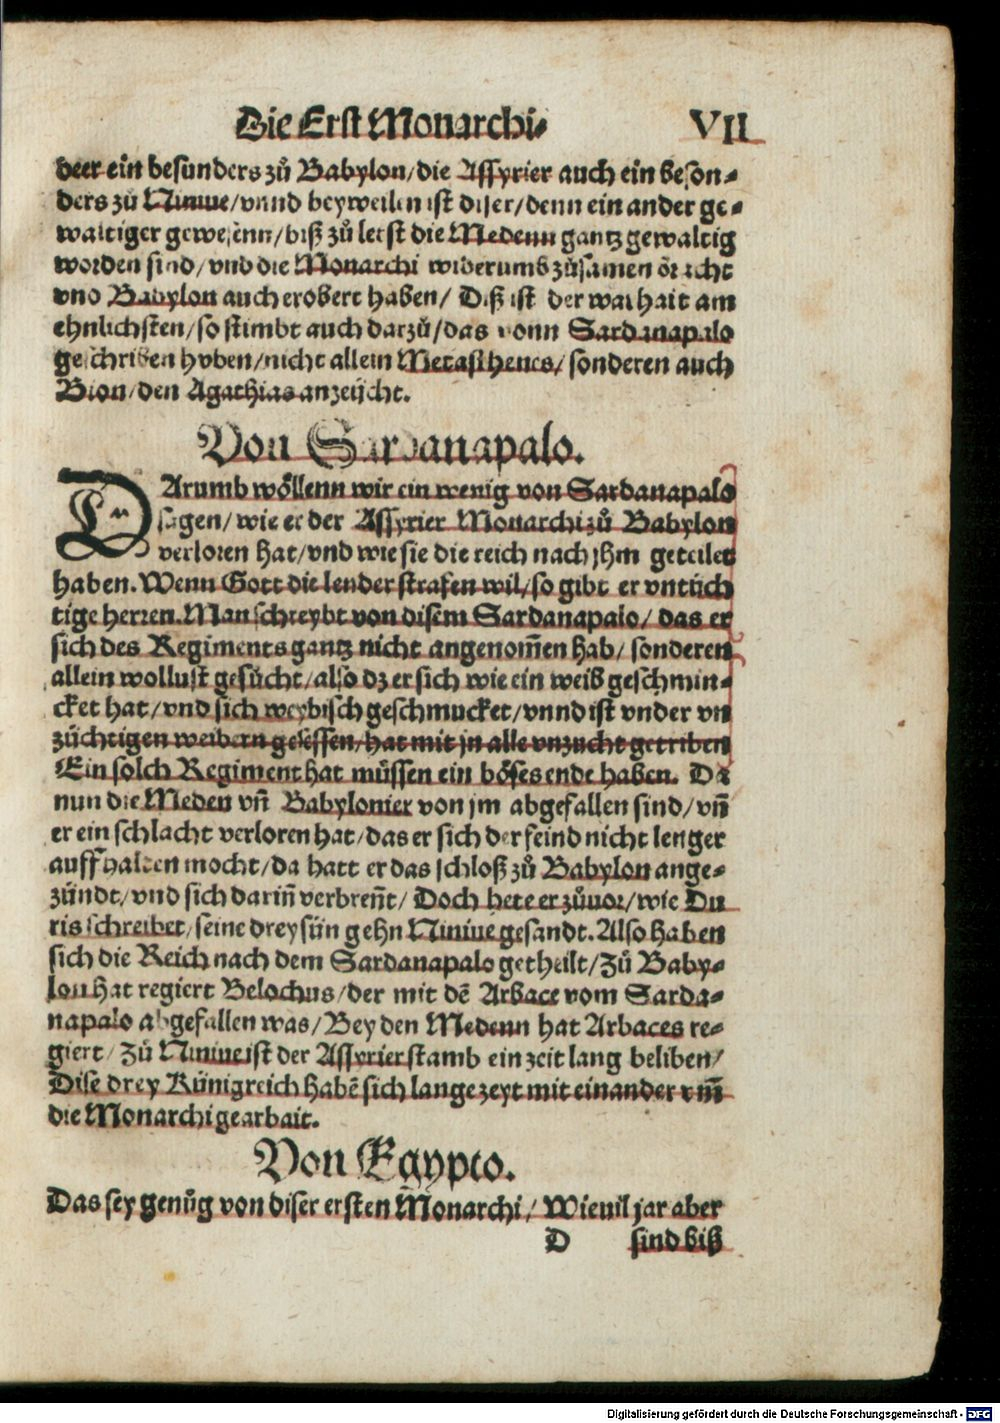 Die Erst Monarchi. VII
deer ein besunders zů Babylon/die Assyrier auch ein beson-
ders zů Niniue/vnnd beyweilen ist diser/denn ein ander ge-
waltiger gewesenn/biß zů letst die Medenn gantz gewaltig
worden sind/vnd die Monarchi widerumb zůsamen bracht
vnd Babylon auch erobert haben/ Diß ist der warhait am
ehnlichsten/so stimbt auch darzů/das vonn Sardanapalo
geschriben hoben/nicht allein Metasthenes/sonderen auch
Bion/den Agathias anzeücht.
Von Sardanapalo.
DArumb wöllenn wir ein wenig von Sardanapalo
sagen/wie er der Assyrier Monarchi zů Babylon
verloren hat/vnd wie sie die reich nach jhm geteilet
haben. Wenn Gott die lender strafen wil/so gibt er vntüch
tige herren. Man schreybt von disem Sardanapalo/ das er
sich des Regiments gantz nicht angenom̃en hab/ sonderen
allein wollust gesůcht/also dz er sich wie ein weib geschmin-
cket hat/vnd sich weybisch geschmucket/vnnd ist vnder vn
züchtigen weibern gesessen/hat mit jn alle vnzucht getriben
Ein solch Regiment hat müssen ein böses ende haben. Da
nun die Meden vñ Babylonier von jm abgefallen sind/vñ
er ein schlacht verloren hat/das er sich der feind nicht lenger
auffhalten mocht/da hatt er das schloß zů Babylon ange-
zündt/vnd sich dariñ verbreñt/ Doch hete er zůuor/wie Du
ris schreibet/seine drey sün gehn Niniue gesandt. Also haben
sich die Reich nach dem Sardanapalo getheilt/Zů Baby-
lon hat regiert Belochus/der mit dẽ Arbace vom Sarda-
napalo abgefallen was/Bey den Medenn hat Arbaces re-
giert/Zů Niniue ist der Assyrier stamb ein zeit lang beliben/
Dise drey Künigreich habẽ sich lange zeyt mit einander vm̃
die Monarchi gearbait.
Von Egypto.
Das sey genůg von diser ersten Monarchi/ Wieuil jar aber
D sind biß
Digitalisierung gefördert durch die Deutsche Forschungsgemeinschaft - DFG